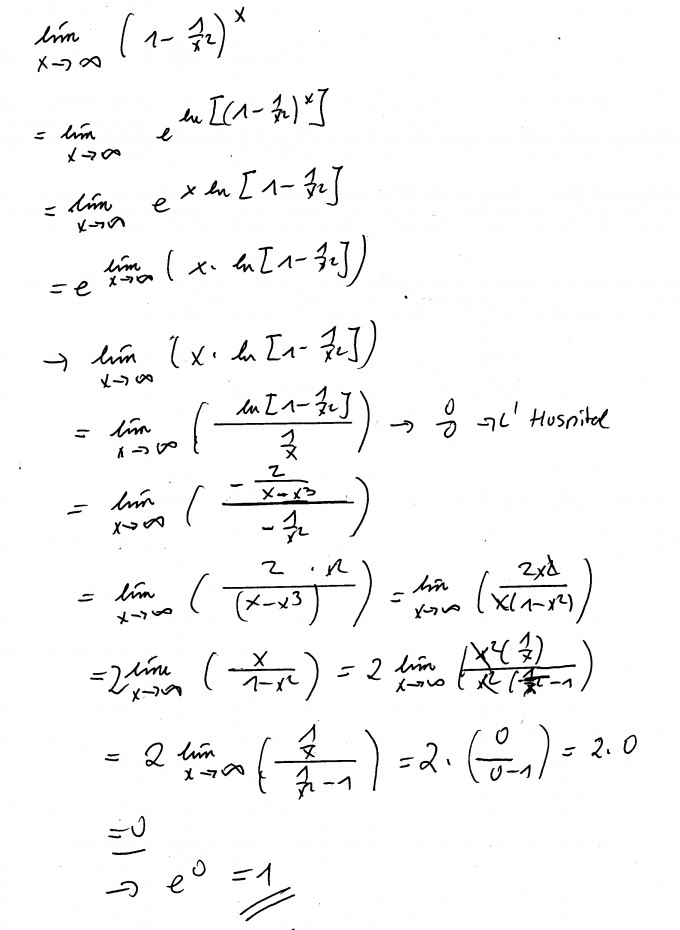 lim x→∞ (1 - 1/x²)^x
= lim x→∞ e^(ln[(1 - 1/x²)^x])
= lim x→∞ e^(x ln[1 - 1/x²])
= e^(lim x→∞ (x · ln[1 - 1/x²]))
→ lim x→∞ (x · ln[1 - 1/x²])
= lim x→∞ (ln[1 - 1/x²] / (1/x)) → 0/0 → L' Hospital
= lim x→∞ ((- 2/(x-x³)) / (- 1/x²))
= lim x→∞ (2 · x² / (x-x³)) = lim x→∞ (2x² / (x(1-x²)))
= 2 lim x→∞ (x / (1-x²)) = 2 lim x→∞ (x²(1/x) / (x²(1/x² - 1)))
= 2 lim x→∞ ((1/x) / (1/x² - 1)) = 2 · (0 / (0-1)) = 2 · 0
= 0
→ e⁰ = 1